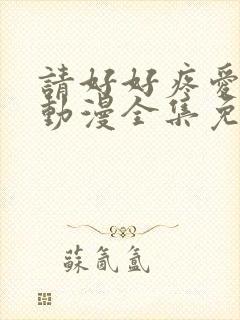 請好好疼愛
動漫全集免
蘇氤氳